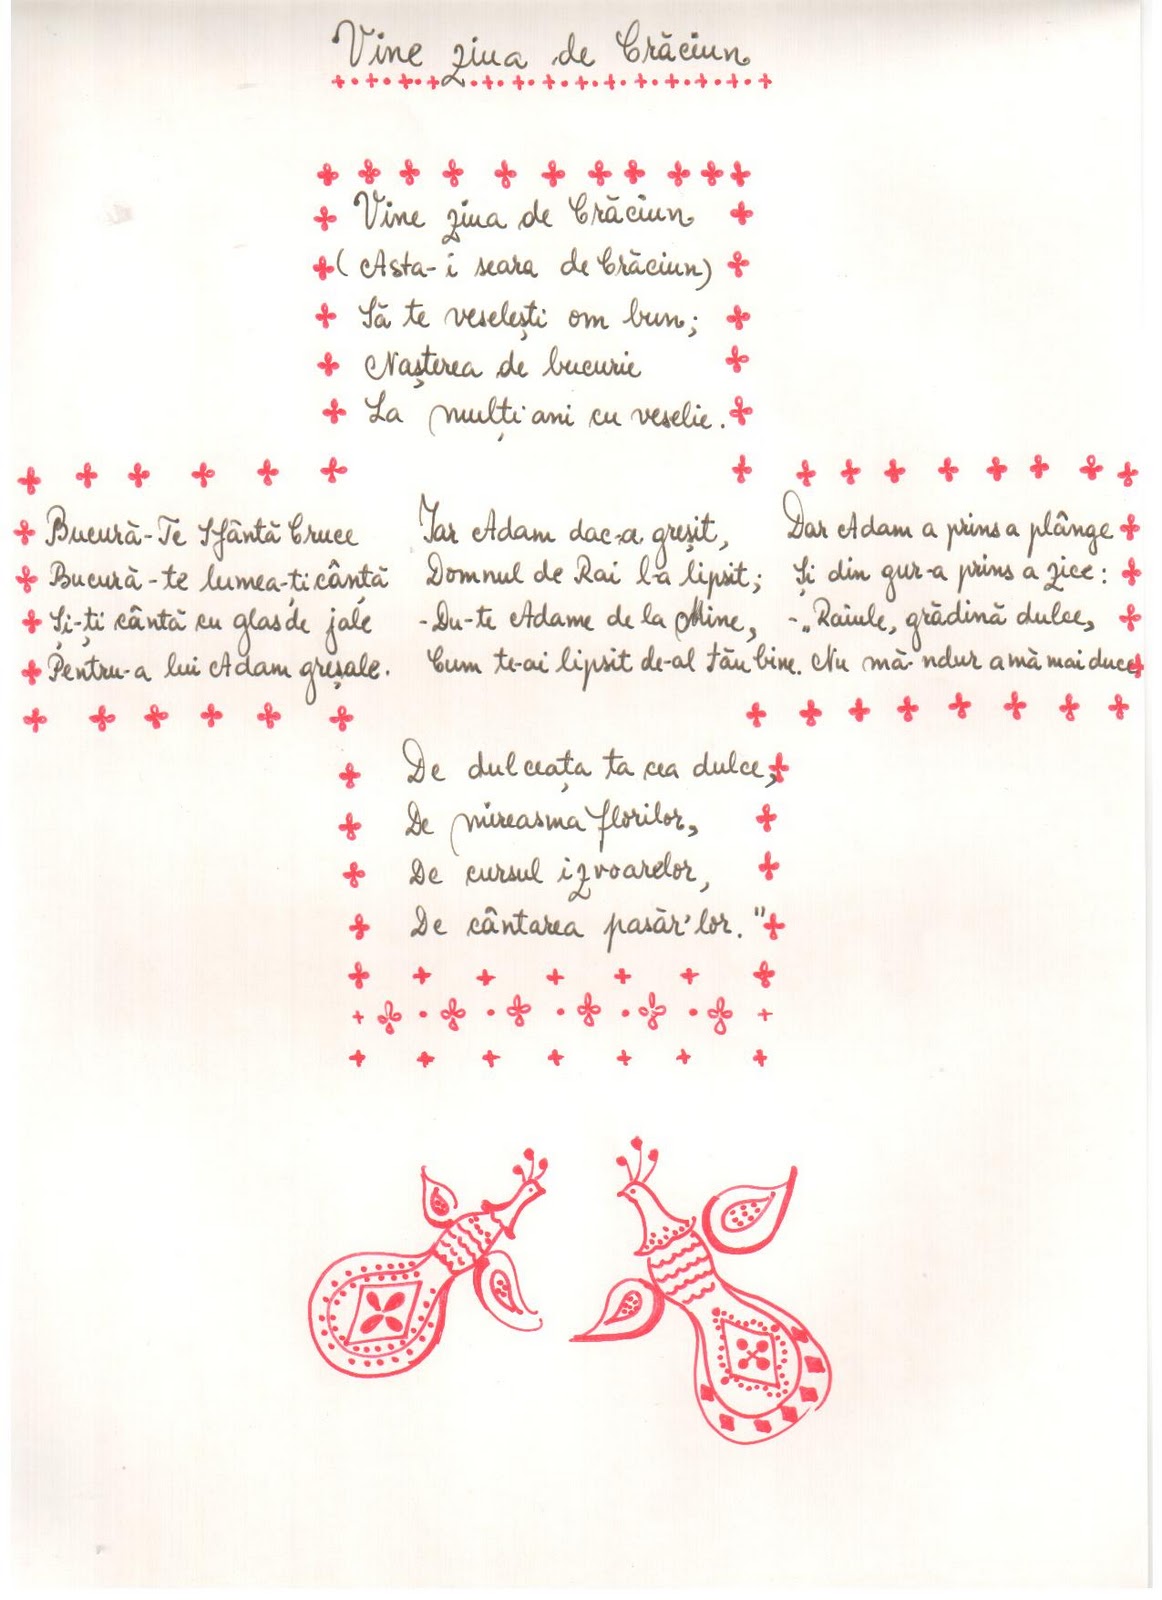 Vine ziua de Crăciun
Vine ziua de Crăciun
(Asta-i seara de Crăciun)
Să te veselești om bun;
Nașterea de bucurie
La mulți ani cu veselie.
Bucură-Te Sfântă Cruce
Bucură-te lumea-ți cântă
Și-ți cântă cu glas de jale
Pentru-a lui Adam greșale.
Iar Adam dac-a greșit,
Domnul de Rai l-a lipsit;
-Du-te Adame de la Mine,
Cum te-ai lipsit de-al tău bine.
Dar Adam a prins a plânge
Și din gur-a prins a zice:
-„Raiule, grădină dulce,
Nu mă-ndur a mă mai duce
De dulceața ta cea dulce,
De mireasma florilor,
De cursul izvoarelor,
De cântarea pasăr'lor."